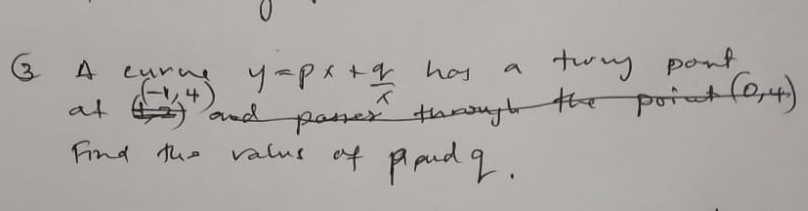 ③ A curve y=px+q/x has a turny point
at (-1,4) and passes through the point (0,4)
Find the values of p and q.